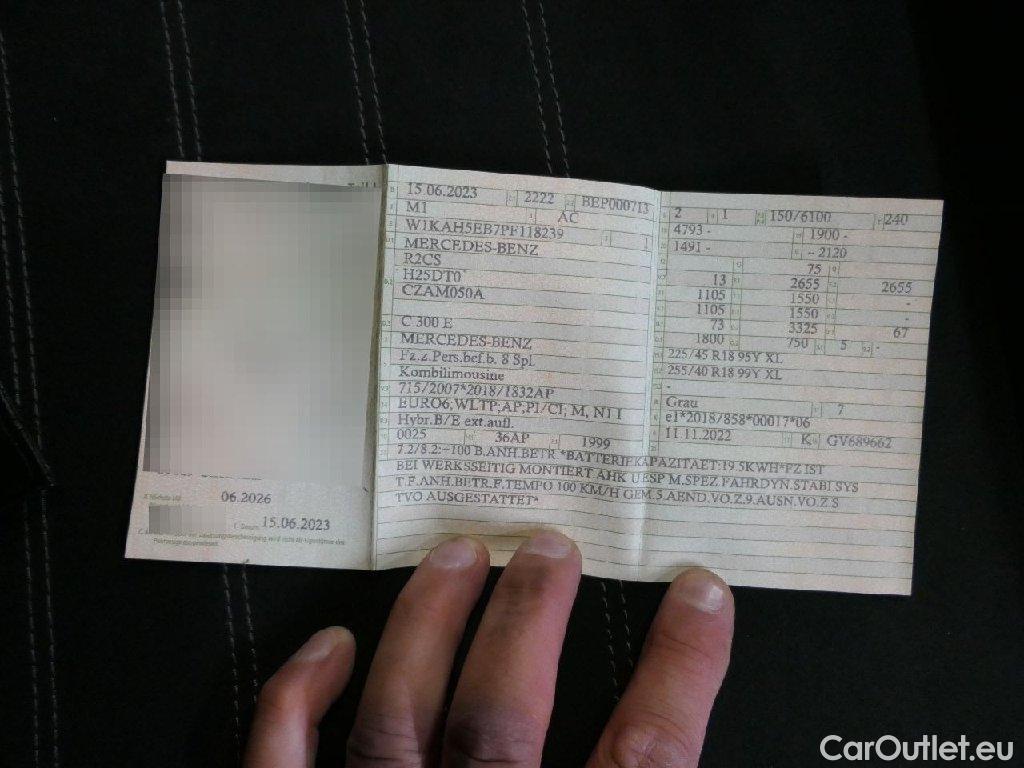 15.06.2023 2222 BEP000713
M1 AC
W1KAH5EB7PF118239 1
MERCEDES-BENZ
R2CS
H25DT0
CZAM050A
C 300 E
MERCEDES-BENZ
Fz.z.Pers.bef.b. 8 Spl.
Kombilimousine
715/2007*2018/1832AP
EURO6;WLTP;AP;PI/CI; M, N1 I
Hybr.B/E ext.aufl.
0025 36AP 1999
7.2/8.2:-100 B.ANH.BETR.*BATTERIEKAPAZITAET:19.5KWH*FZ IST
BEI WERKSSEITIG MONTIERT AHK UESP M.SPEZ.FAHRDYN.STABI SYS
T.F.ANH.BETR.F.TEMPO 100 KM/H GEM.5.AEND.VO.Z.9.AUSN.VO.Z.S
TVO AUSGESTATTET*
2 1 150/6100 240
4793 - 1900 -
1491 - -- 2120
75
13 2655 2655
1105 1550 -
1105 1550 -
73 3325 67
1800 750 5 -
225/45 R18 95Y XL
255/40 R18 99Y XL
-
Grau 7
e1*2018/858*00017*06
11.11.2022 K GV689662
06.2026
15.06.2023
CarOutlet.eu